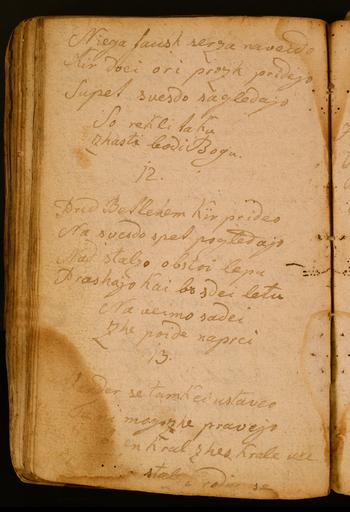 Niega faush serza naverdo
Kir doci ori prozh pridejo
Supet svesdo sagledajo
So rekli taku
Zhast bodi Bogu.
12.
Pred Betlehem kir prideo
Na svesdo spet pogledajo
Nad stalzo obstoi lepu
Prashajo kai bo sdei letu
Na veimo sadei
Zhe poide naprei
13.
se tamkei ustaveo
mogozhe pravejo
en kral zhes krale use
stalz rodir se